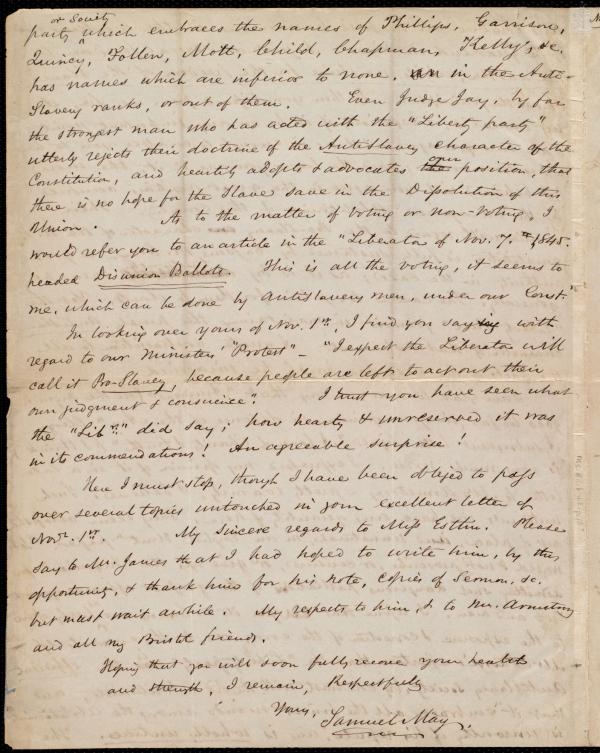 or Society
party, which embraces the names of Phillips, Garrison,
Quincy, Follen, Mott, Child, Chapman, Kelly, &c.
has names which are inferior to none, in the Anti-
Slavery ranks, or out of them. Even Judge Jay, by far
the strongest man who has acted with the "Liberty party"
utterly rejects their doctrine of the AntiSlavery character of the
Constitution, and heartily adopts & advocates the our position, that
there is no hope for the Slave save in the Dissolution of this
Union. As to the matter of Voting or non-Voting, I
would refer you to an article in the "Liberator of Nov. 7. 1845.
headed Disunion Ballots. This is all the voting, it seems to
me, which can be done by Antislavery men, under our Const."
In looking over yours of Nov. 1st, I find you saying with
regard to our Ministers' "Protest" – "I expect the Liberator will
call it Pro-Slavery, because people are left to act out their
own judgment & conscience". I trust you have seen what
the "Libr." did say; how hearty & unreserved it was
in its commendations! An agreeable surprise!
Here I must stop, though I have been obliged to pass
over several topics untouched in your excellent letter of
Novr. 1st. My sincere regards to Miss Estlin. Please
say to Mr. James that I had hoped to write him, by this
opportunity, & thank him for his note, copies of Sermon, &c.
but must wait awhile. My respects to him, & to Mr. Armstrong
and all my Bristol friends.
Hoping that you will soon fully recover your health
and strength, I remain, Respectfully
Yours, Samuel May,